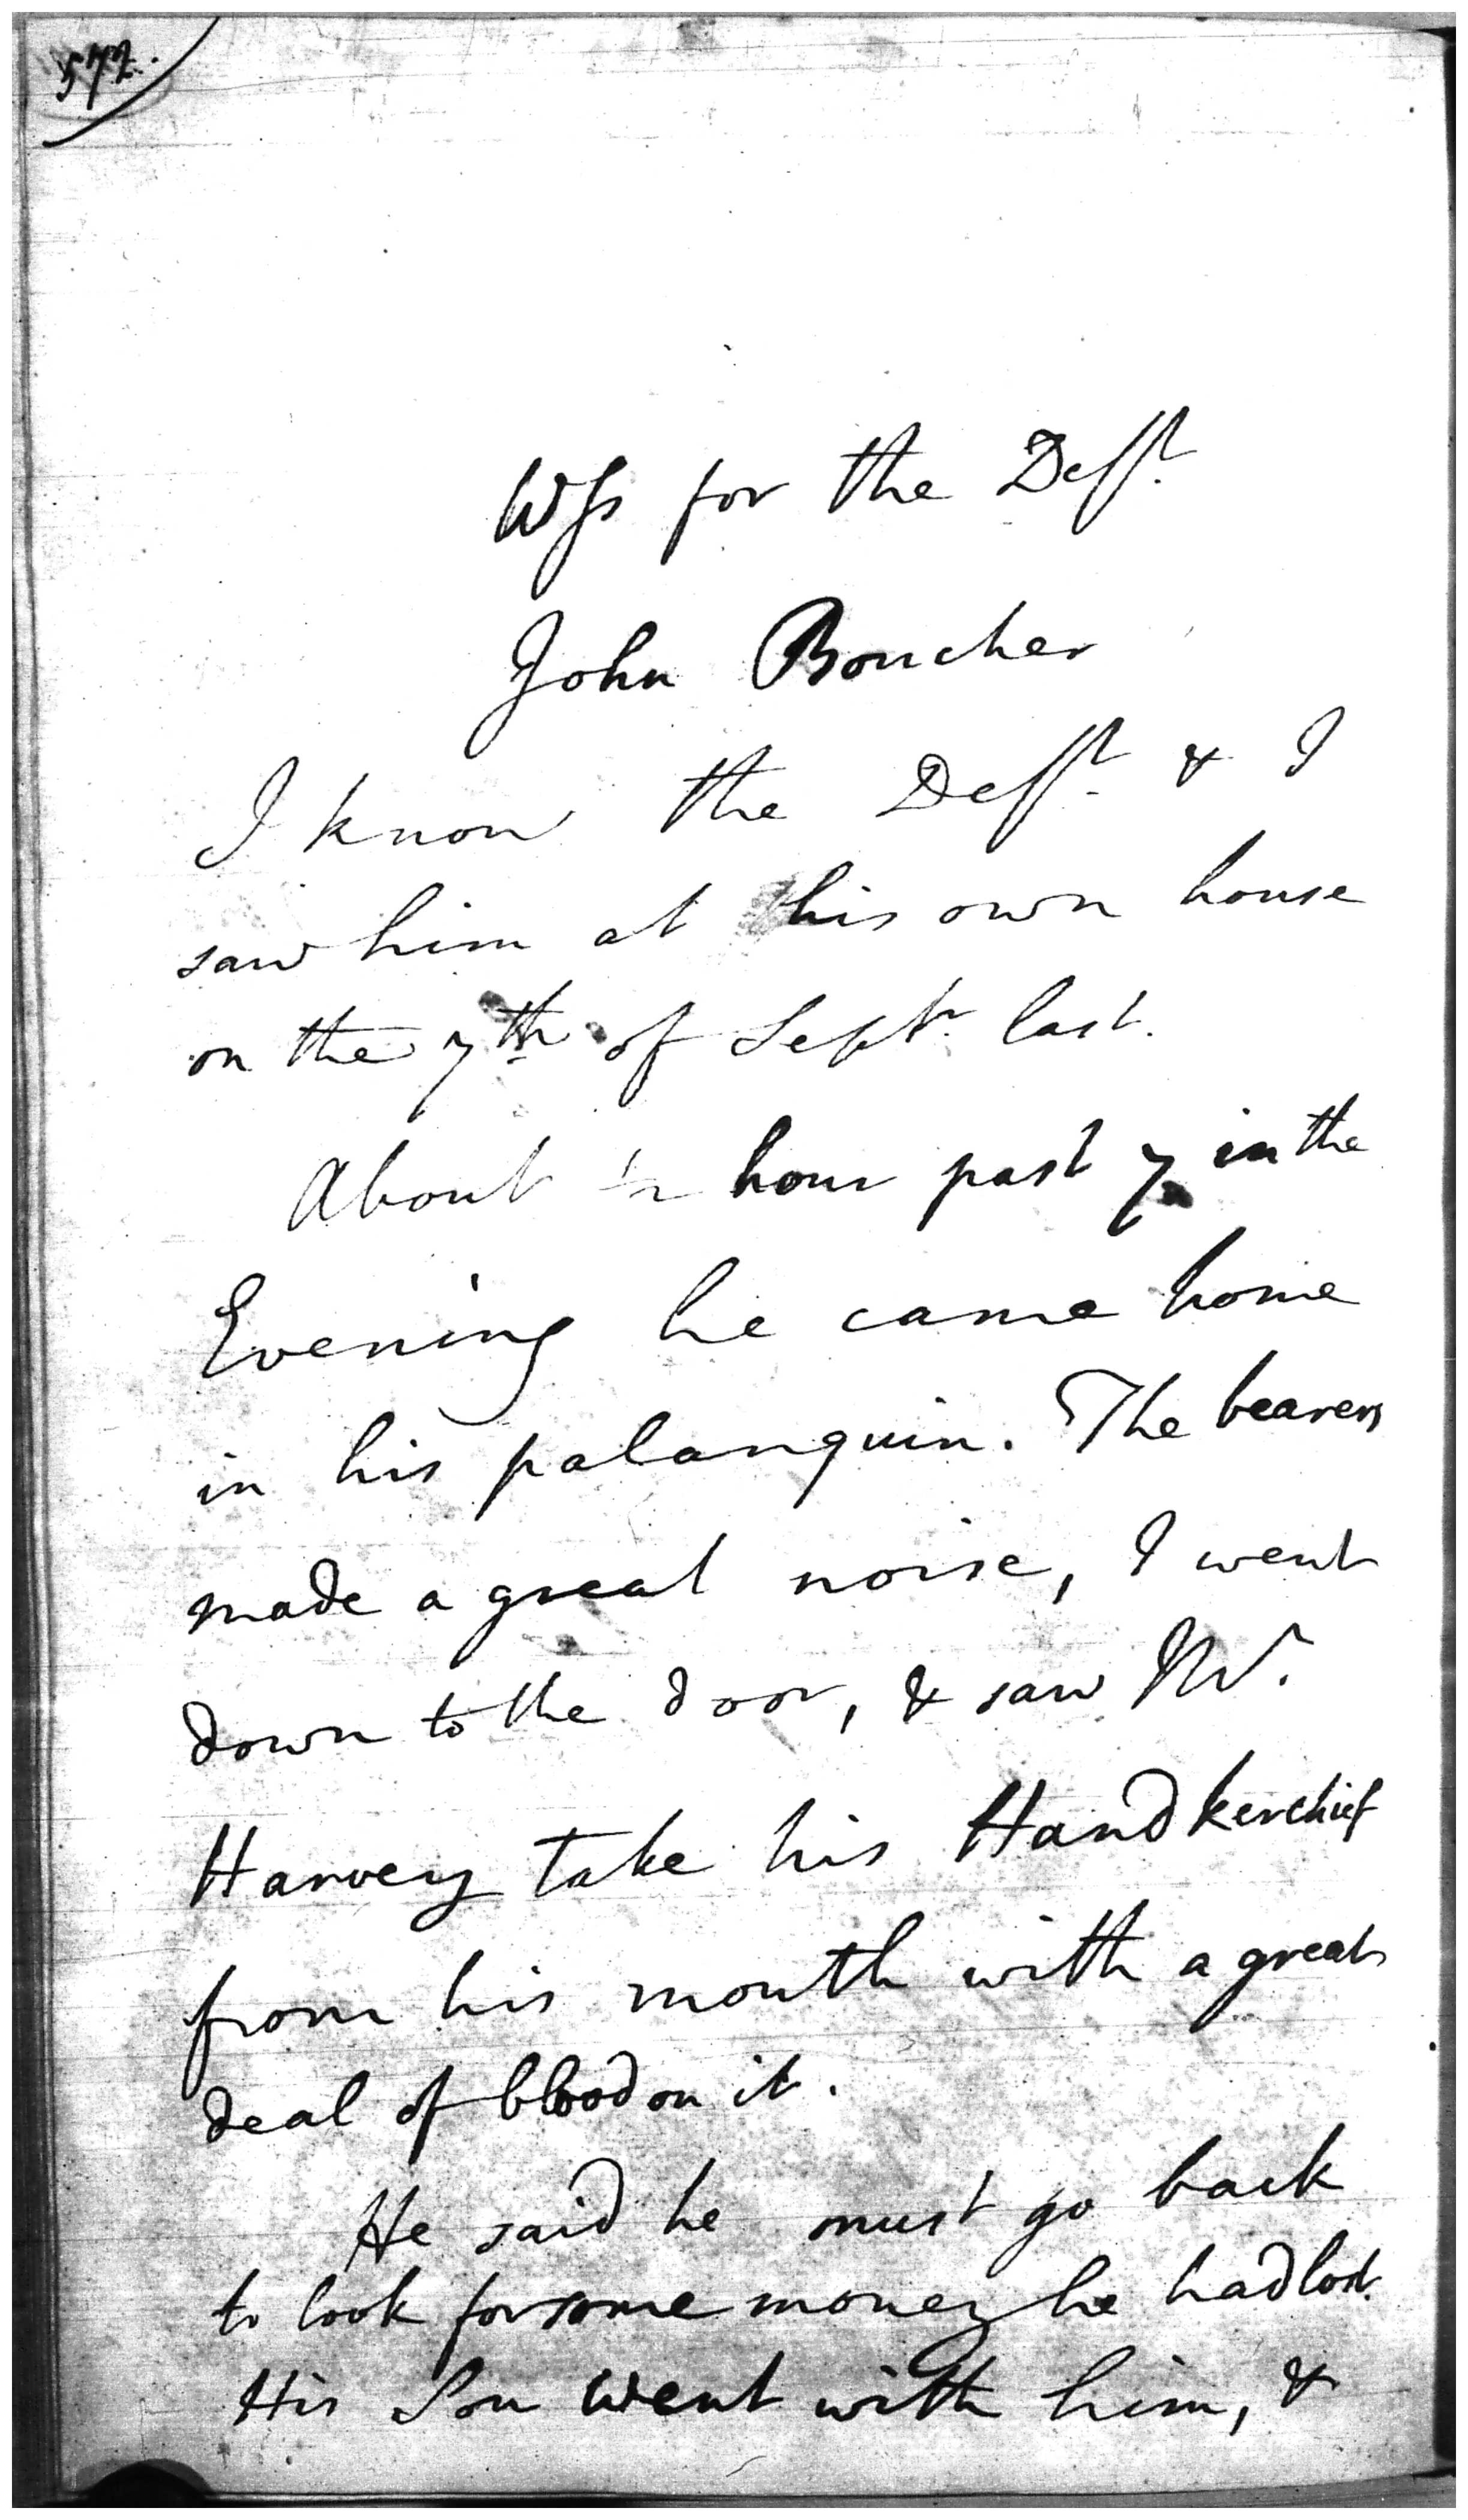 572.
Wss for the Defft.
John Boucher
I know the Defft. & I
saw him at his own house
on the 7th of Septr. last.
About 1/2 hour past 7 in the
Evening he came home
in his palanquin. The bearers
made a great noise, I went
down to the door, & saw Mr.
Harvey take his Handkerchief
from his mouth with a great
deal of blood on it.
He said he must go back
to look for some money he had lost.
His Son went with him, &